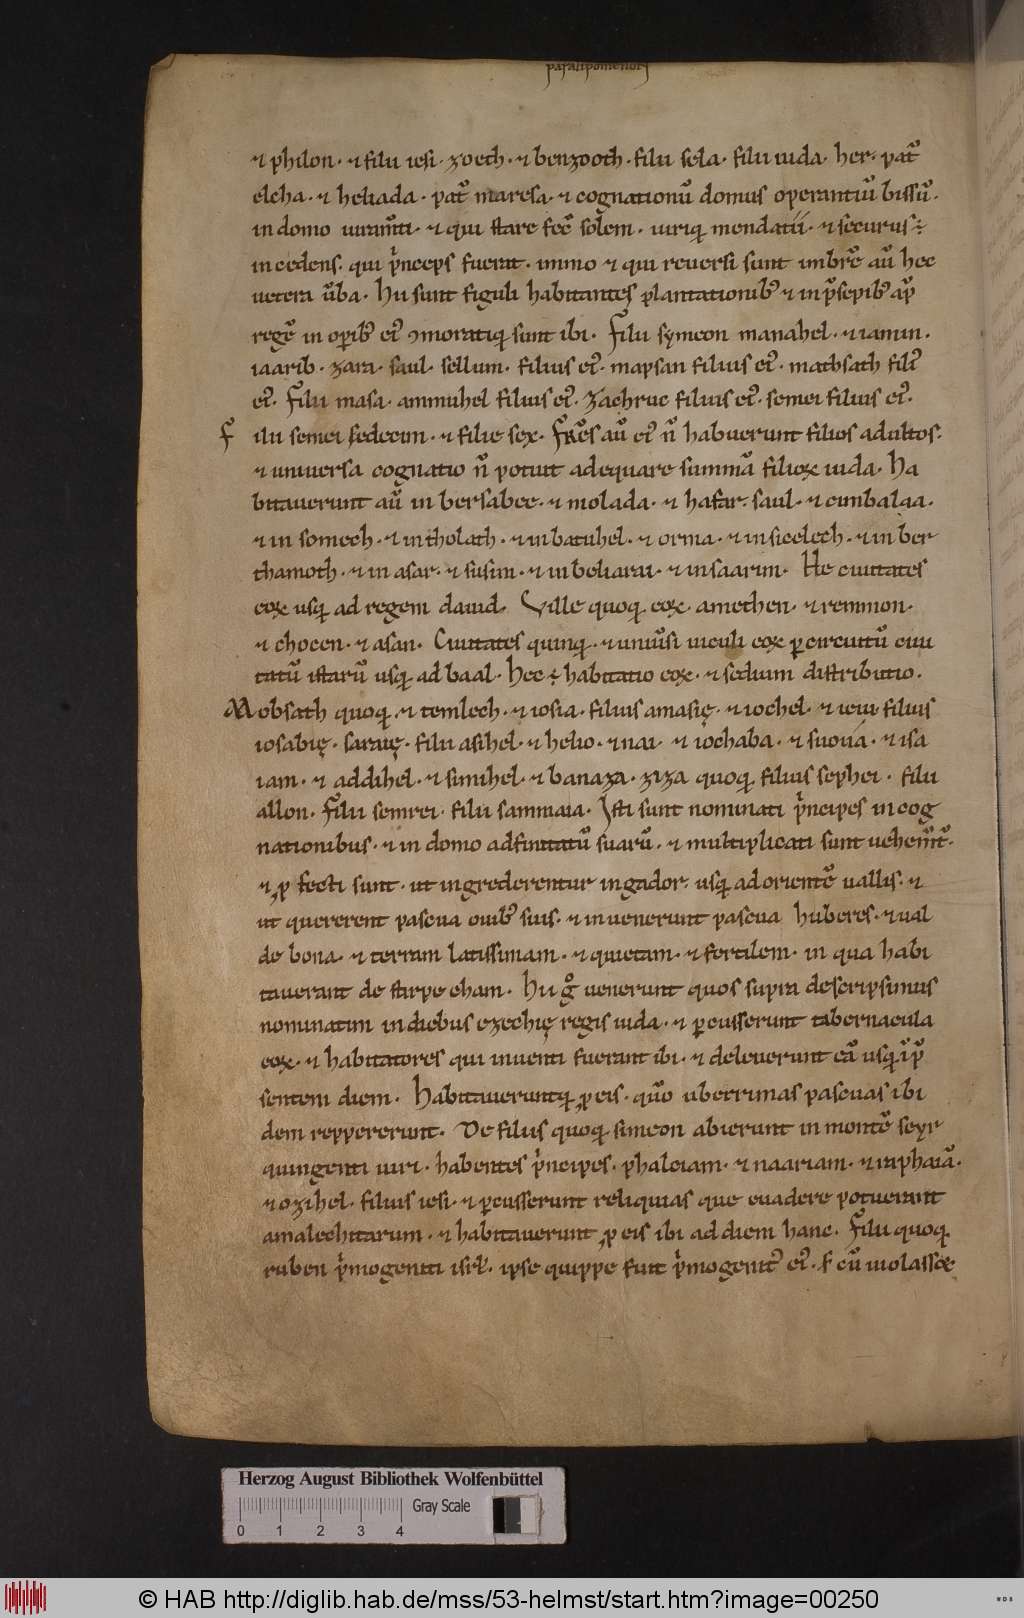 paralipomenon
⁊ philon · ⁊ filii iesi · zoeth · ⁊ benzooth · filii sela · filii iuda · her · pat̄
elcha · ⁊ heliada · pat̄ maresa · ⁊ cognationū domus operantiū bissū ·
in domo iuram̄ti · ⁊ qui stare fec̄ solem · uiriq; mendatii · ⁊ securus ·
incedens · qui p̄nceps fuerat · immo ⁊ qui reuersi sunt imbrē aū hec
uetera ūba · Hii sunt figuli habitantes plantationib; ⁊ in p̄sepib; ap̄
regē in oꝑib; ei; ꝯmoratiq; sunt ibi · Filii symeon manahel · ⁊ iamin ·
iaarib · zara · saul · sellum · filius ei; · mapsan filius ei; · mathsath fili;
ei; · Filii masa · ammuhel filius ei; · Zachruc filius ei; · semei filius ei; ·
Filii semei sedecim · ⁊ filie sex · Fr̄es aū ei; n̄ habuerunt filios adultos ·
⁊ uniuersa cognatio n̄ potuit adequare summā filioꝝ iuda · Ha
bitauerunt aū in bersabee · ⁊ molada · ⁊ hasar · saul · ⁊ cunbalaa ·
⁊ in somech · ⁊ in tholath · ⁊ in batuhel · ⁊ orma · ⁊ in sicelech · ⁊ in ber
thamoth · ⁊ in asar · ⁊ susim · ⁊ in beliarai · ⁊ in saarim · He ciuitates
eoꝝ usq; ad regem dauid · Ville quoq; eoꝝ · amethen · ⁊ remmon ·
⁊ chocen · ⁊ asan · Ciuitates quinq; · ⁊ uniūsi uiculi eoꝝ ꝑ circuitū ciui
tatū istarū usq; ad baal · Hec ÷ habitatio eoꝝ · ⁊ sedium distributio ·
Mobsath quoq; · ⁊ temlech · ⁊ iosia · filius amasię · ⁊ iohel · ⁊ ieiu filius
iosabię · saraię · filii asihel · ⁊ helio · ⁊ nai · ⁊ iochaba · ⁊ suoua · ⁊ isa
iam · ⁊ addihel · ⁊ simihel · ⁊ banaza · ziza quoq; filius sephei · filii
allon · filii semrei · filii sammaia · Isti sunt nominati p̄ncipes in cog
nationibus · ⁊ in domo adfinitatū suarū · ⁊ multiplicati sunt uehem̄t̄ ·
⁊ ꝓfecti sunt · ut ingrederentur in gador · usq; ad orientē uallis · ⁊
ut quererent pascua ouib; suis · ⁊ inuenerunt pascua huberes · ⁊ ual
de bona · ⁊ terram latissimam · ⁊ quietam · ⁊ fertilem · in qua habi
tauerant de stirpe cham · Hii g̊ uenerunt quos supra descripsimus
nominatim in diebus ezechię regis iuda · ⁊ ꝑcusserunt tabernacula
eoꝝ · ⁊ habitatores qui inuenti fuerant ibi · ⁊ deleuerunt eā usq; ī p̄
sentem diem · Habitaueruntq; ꝓ eis · qūo uberrimas pascuas ibi
dem reppererunt · De filiis quoq; simeon abierunt in montē seyr
quingenti uiri · habentes p̄ncipes · phalciam · ⁊ naariam · ⁊ raphaiā ·
⁊ ozihel · filius iesi · ⁊ ꝑcusserunt reliquias que euadere potuerant
amalechitarum · ⁊ habitauerunt ꝓ eis ibi ad diem hanc · Filii quoq;
ruben p̄mogeniti isrl̄ · ipse quippe fuit p̄mogenit; ei; · s; cū uiolasset
Herzog August Bibliothek Wolfenbüttel
0 1 2 3 4 Gray Scale
© HAB http://diglib.hab.de/mss/53-helmst/start.htm?image=00250